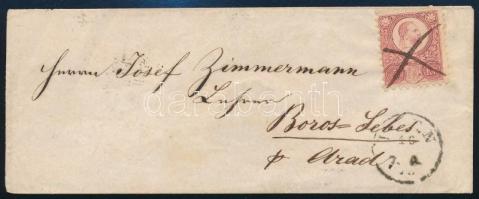 Herrn Josef Zimmermann
Lehrer
Boros=Sebes
p Arad
darabanth